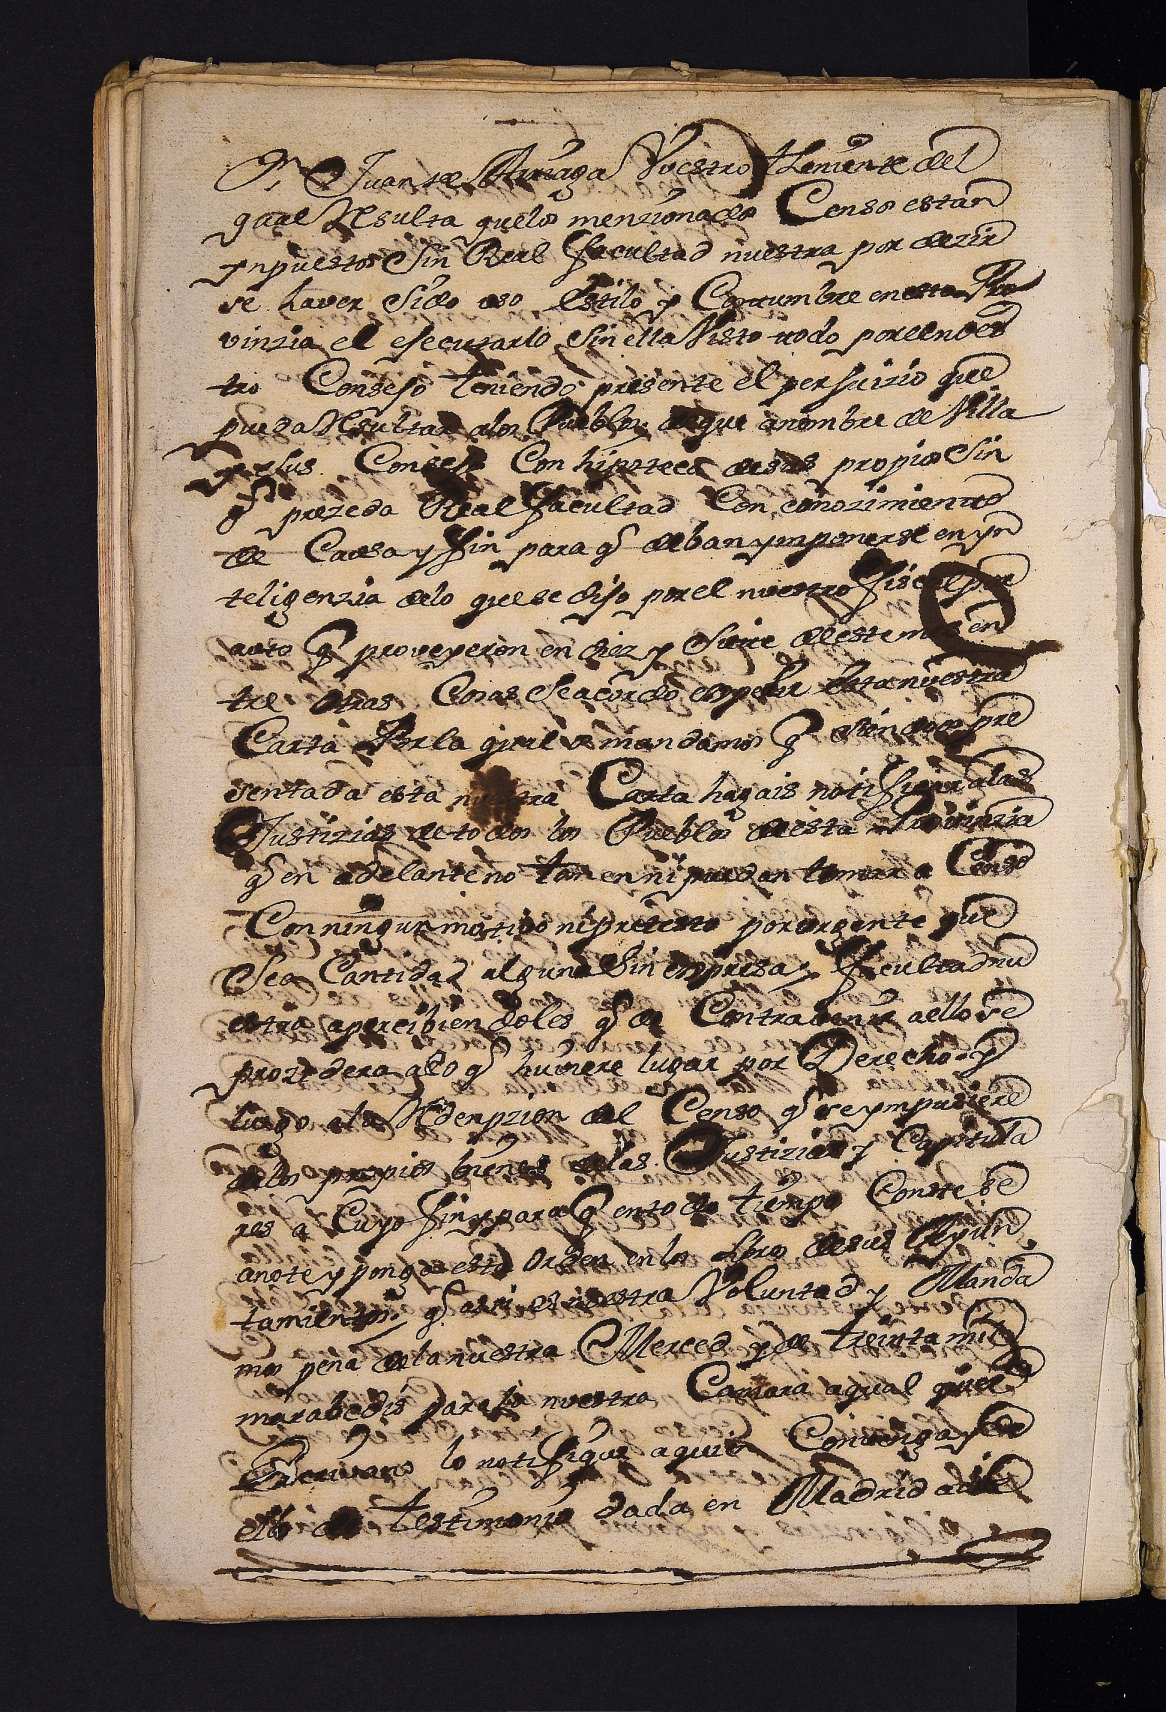 Dn Juan de Arriaga Vuestro theniente del
qual Resulta quelos menzionados Censos estan
ynpuestos Sin Real facultad nuestra por dezir
se haver Sido uso Estilo y Costumbre en esta Pro
vinzia el efecutarlo Sin ella Visto todo por el nues
tro Consejo teniendo presente el perjuizio que
pueda Resultar alos Pueblos de que a nombre de Villa
y sus Consejo Con hipoteca de sus propios Sin
q̃ prezeda Real facultad Con conozimiento
de Causa y fin para q̃ deban ymponerse en yn
teligenzia delo que se dijo por el nuestro fiscal por
auto q̃ proveyeron en diez y Siete de este mes en
tre otras Cosas Se acordo espedir esta nuestra
Carta Por la qual os mandamos q̃ siendoos pre
sentada esta nuestra Carta hagais notificar alas
Justizias de todos los Pueblos de esta Provinzia
q̃ en adelante no tomen ni puedan tomar a Censo
Con ningun motibo ni pretesto por urgente que
Sea Cantidad alguna Sin espresa facultad nu
estra aperzibiendoles q̃ de Contravenir a ello se
prozedera alo q̃ huviere lugar por Derecho y
luego ala Redenpzion del Censo q̃ se ympusiere
delos propios bienes delas Justizias y Capitula
res a Cuyo fin y para q̃ en todo tiempo Conste se
anote y ponga esta Orden en los libros de sus Ayun
tamientos q̃ assi es nuestra Voluntad y Manda
mos pena dela nuestra Merced y de treinta mil
marabedis para la nuestra Camara a qual quier
Escrivano lo notifique a quien Convenga y de
ello de testimonio dada en Madrid a diez